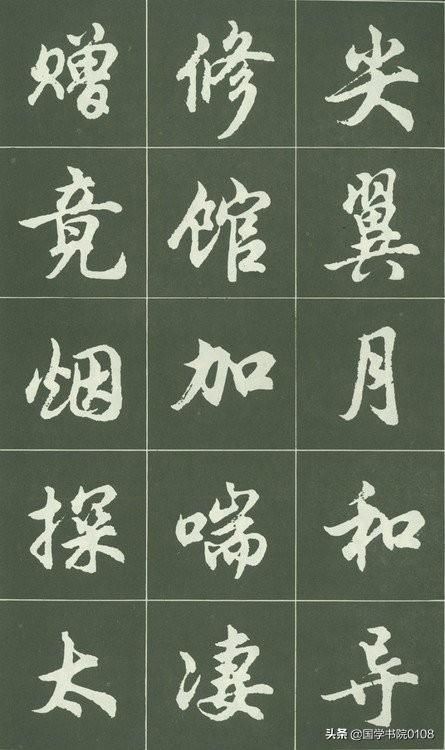 尖翼月和导
修馆加喘凄
赠竟烟探太
头条 @国学书院0108